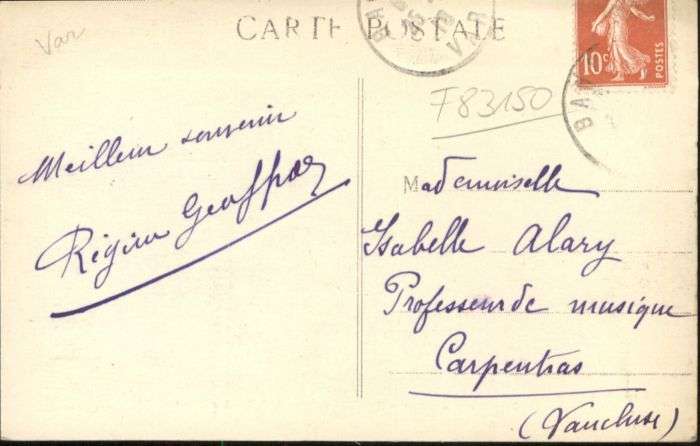 Var
CARTE POSTALE
BA
VAR
10c
POSTES
BA
F83150
Meilleur souvenir
Régina Geoffroy
Mademoiselle
Isabelle Alary
Professeur de musique
Carpentras
(Vaucluse)